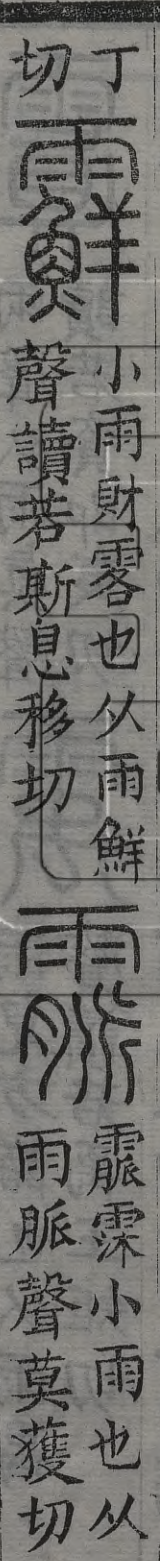 丁
切
𩆵
小雨財𩂣也从雨鮮
聲讀若斯息移切
霢
霢霂小雨也从
雨脈聲莫獲切